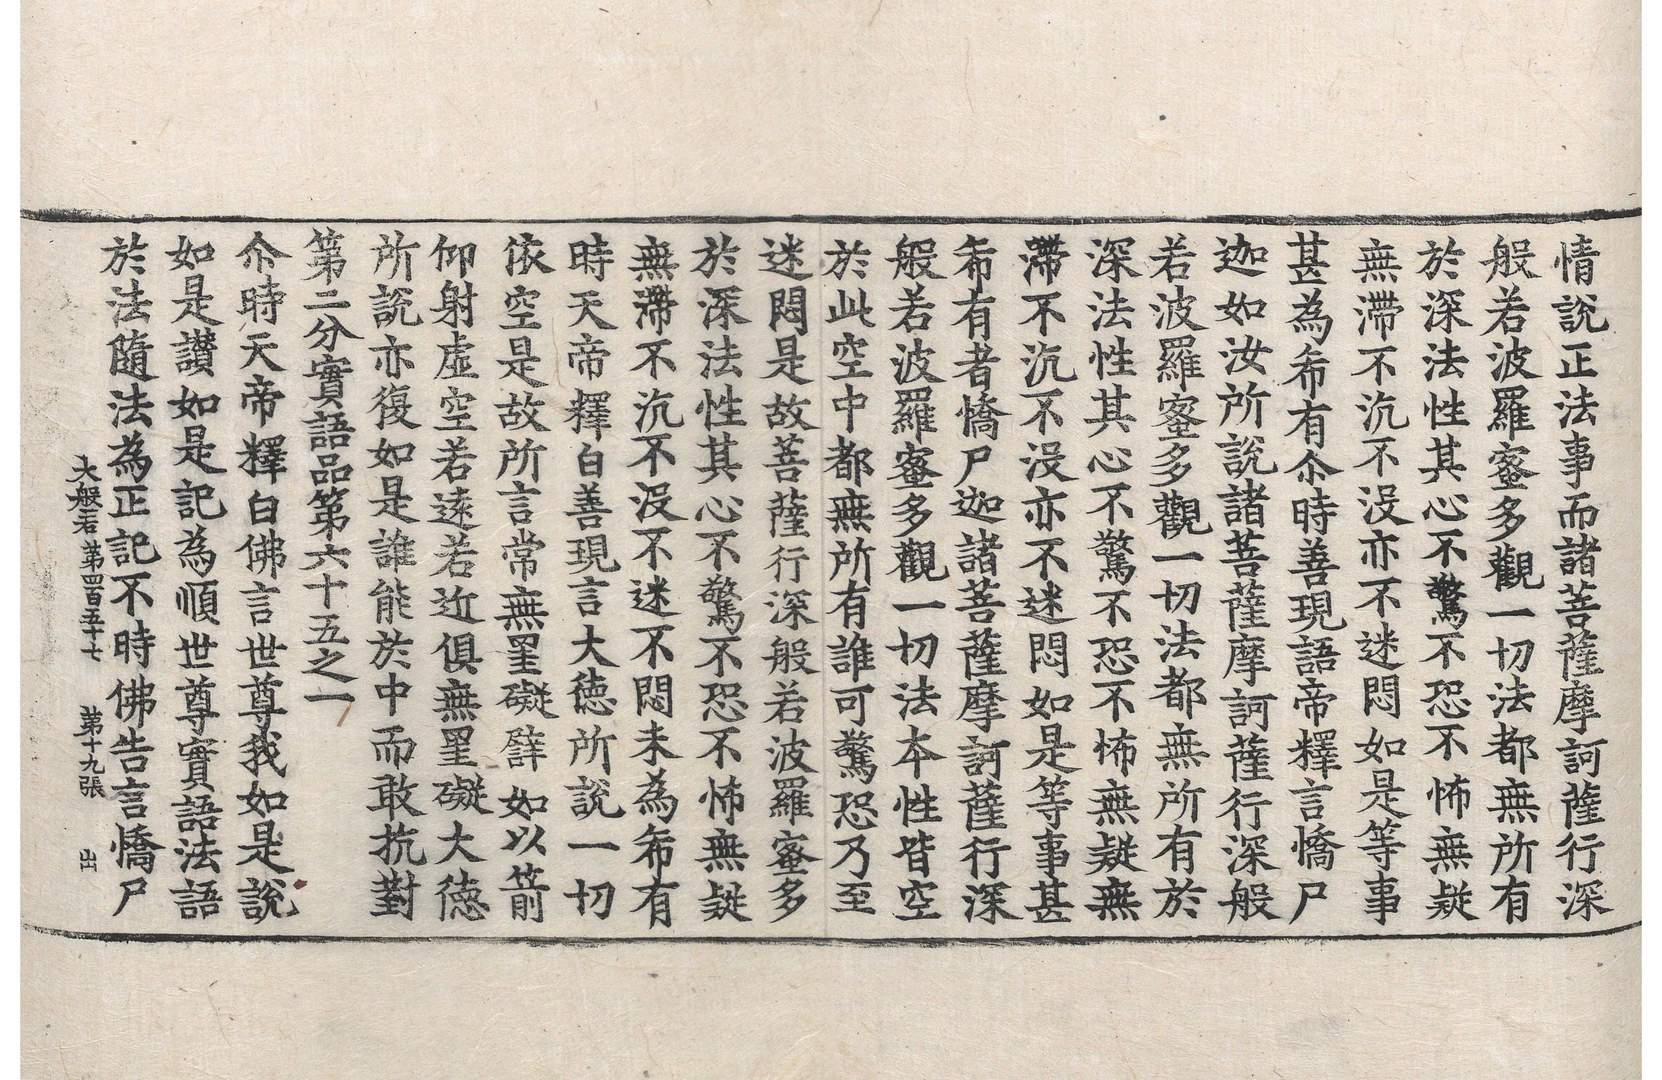 情說正法事而諸菩薩摩訶薩行深
般若波羅蜜多觀一切法都無所有
於深法性其心不驚不恐不怖無疑
無滯不沉不沒亦不迷悶如是等事
甚為希有尒時善現語帝釋言憍尸
迦如汝所說諸菩薩摩訶薩行深般
若波羅蜜多觀一切法都無所有於
深法性其心不驚不恐不怖無疑無
滯不沉不沒亦不迷悶如是等事甚
希有者憍尸迦諸菩薩摩訶薩行深
般若波羅蜜多觀一切法本性皆空
於此空中都無所有誰可驚恐乃至
迷悶是故菩薩行深般若波羅蜜多
於深法性其心不驚不恐不怖無疑
無滯不沉不沒不迷不悶未為希有
時天帝釋白善現言大德所說一切
依空是故所言常無罣礙譬如以箭
仰射虛空若遠若近俱無罣礙大德
所說亦復如是誰能於中而敢抗對
第二分實語品第六十五之一
尒時天帝釋白佛言世尊我如是說
如是讚如是記為順世尊實語法語
於法隨法為正記不時佛告言憍尸
大般若第四百五十七 第十九張 出